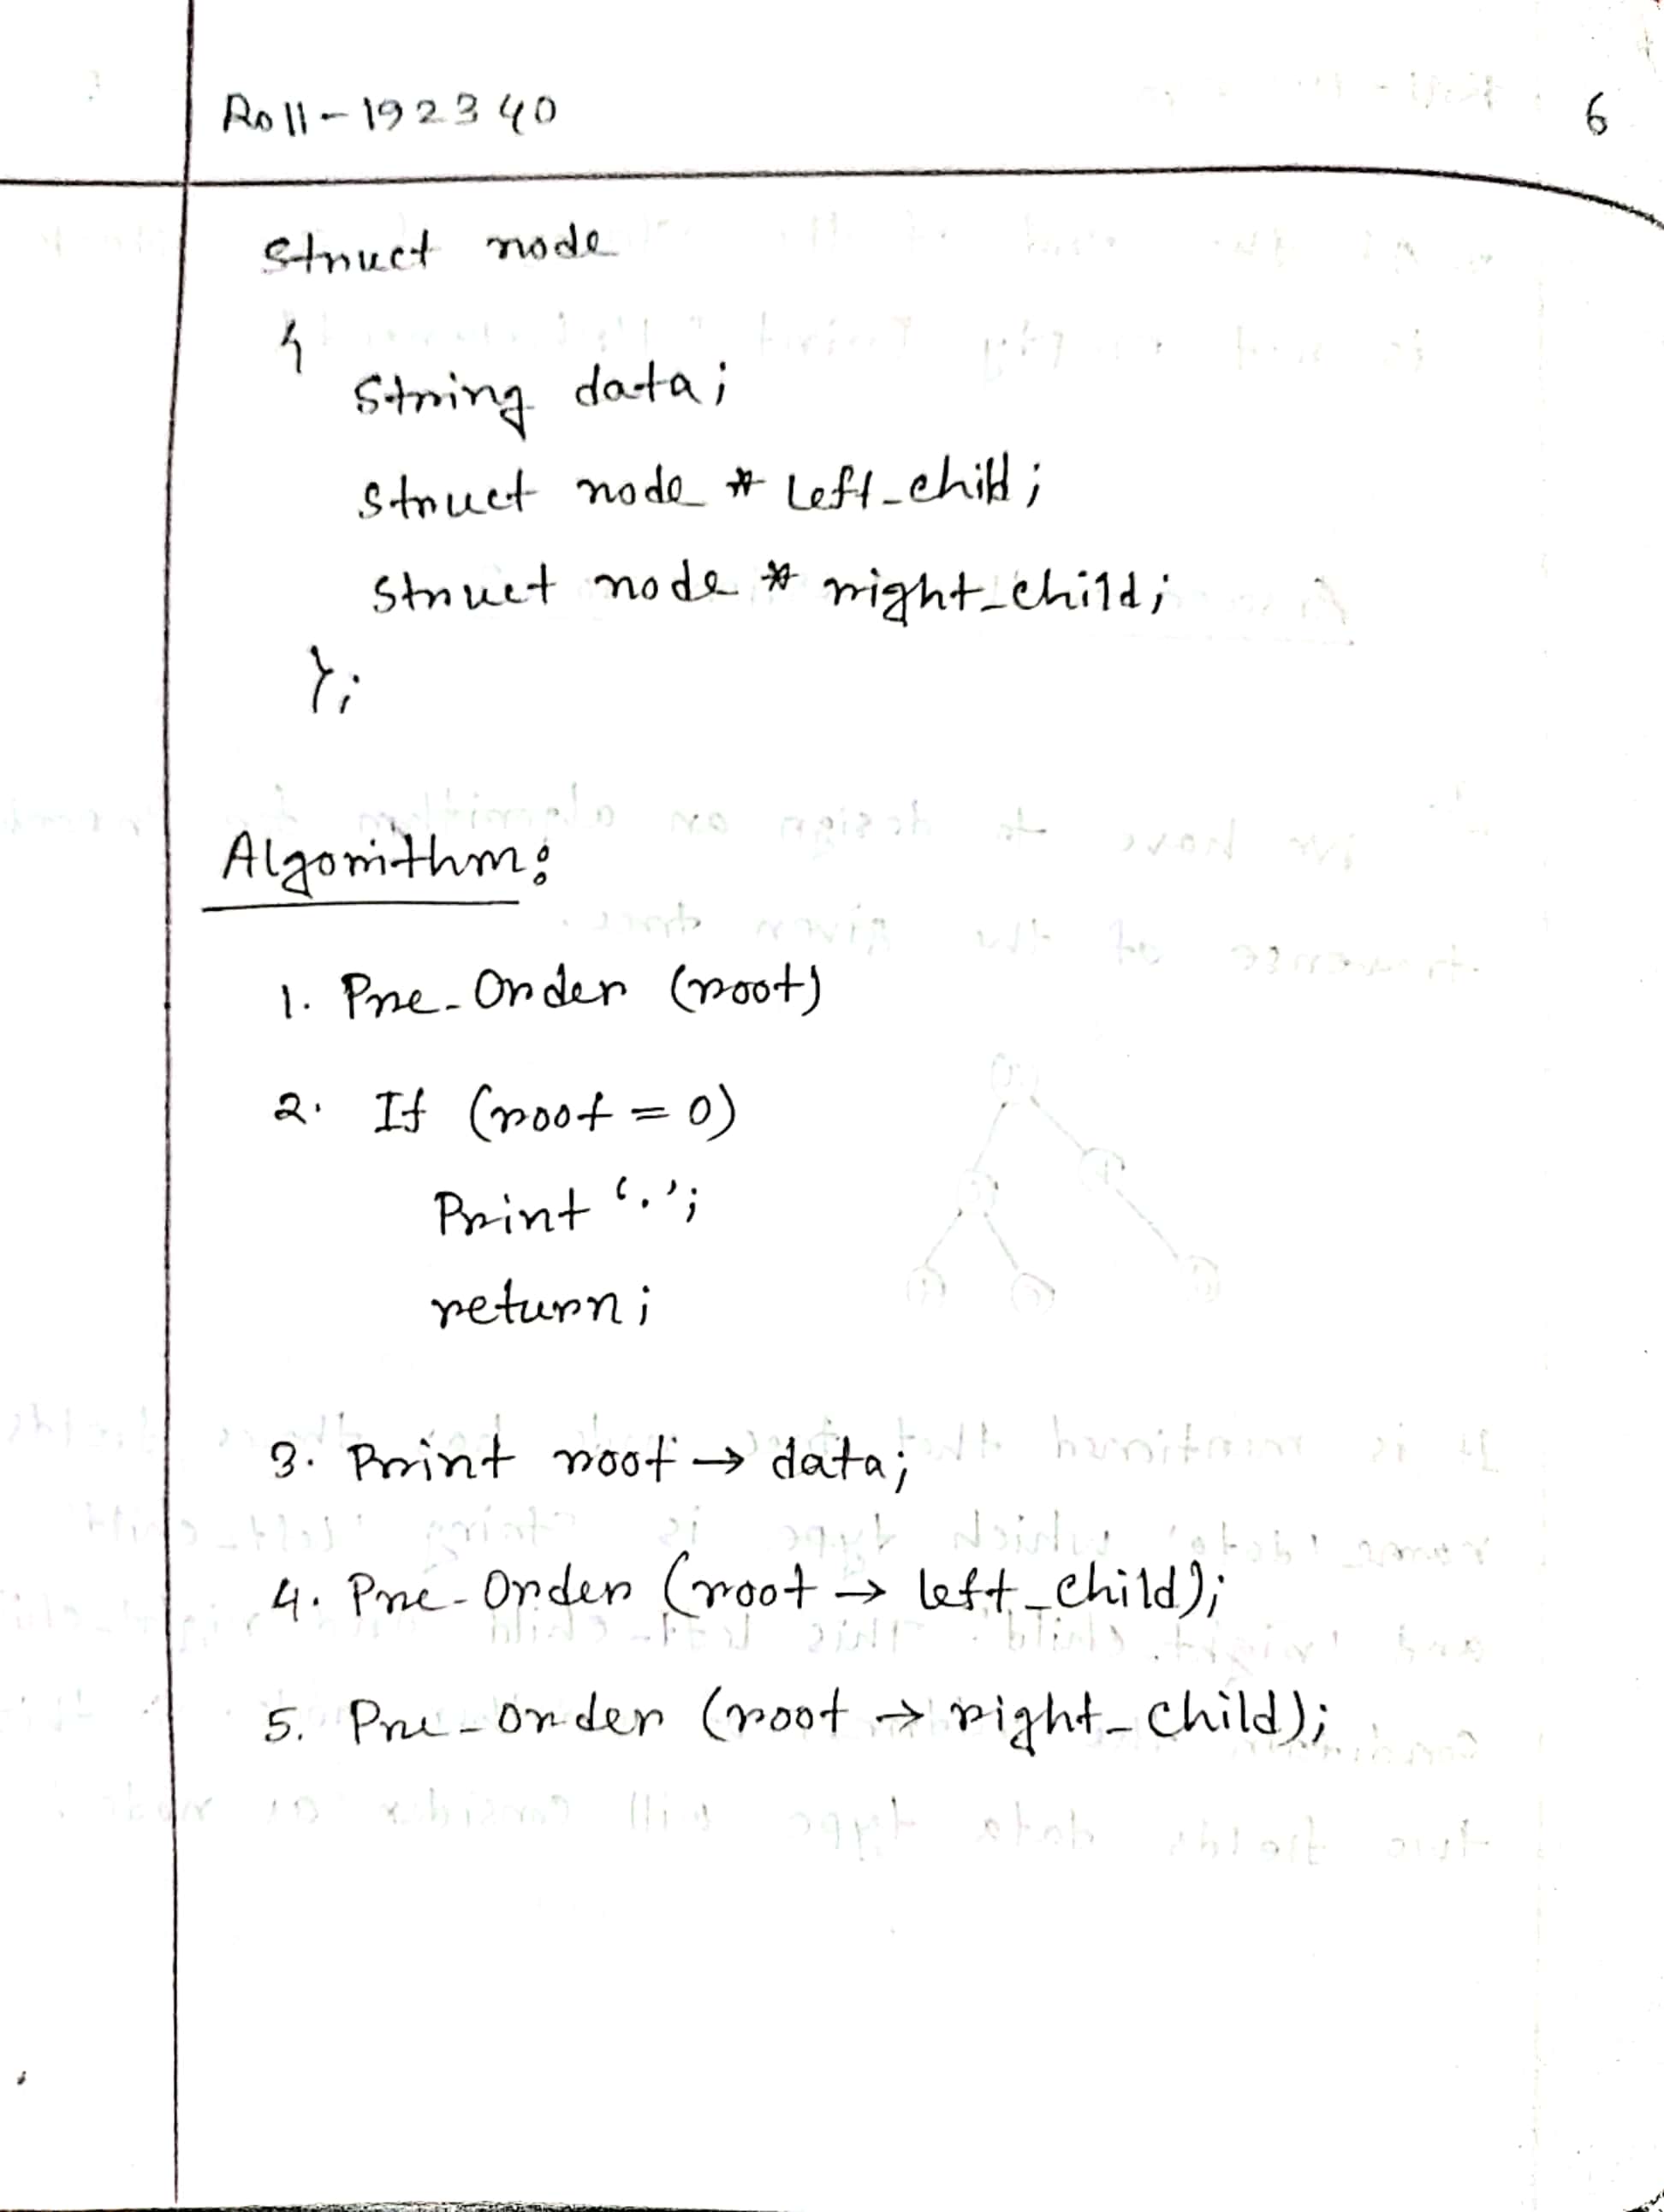 Roll-192340
6
Struct node
{
String data;
Struct node * Left_child;
Struct node * right_child;
};
Algorithm:
1. Pre-Order (root)
2. If (root = 0)
Print '.';
return;
3. Print root → data;
4. Pre-Order (root → left_child);
5. Pre-order (root → right_child);